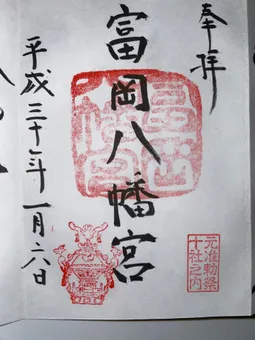 奉拝
富岡八幡宮
元准勅祭
十社之内
平成三十年一月六日